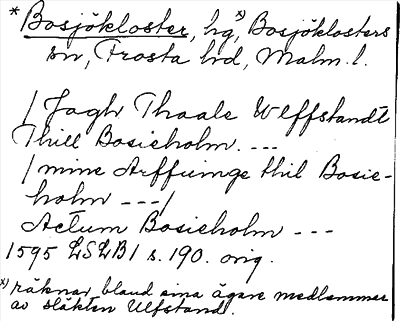 * Bosjökloster, hg,x) Bosjöklosters
sn, Frosta hd, Malm. l.
/ Jagh Thaale Ulffstandt
Thill Bosieholm. ---
/ mine Arffuinge thil Bosie-
holm --- /
Actum Bosieholm ---
1595 LSLB1 s. 190. orig.
x) räknar bland sina ägare medlemmer
av släkten Ulfstand.